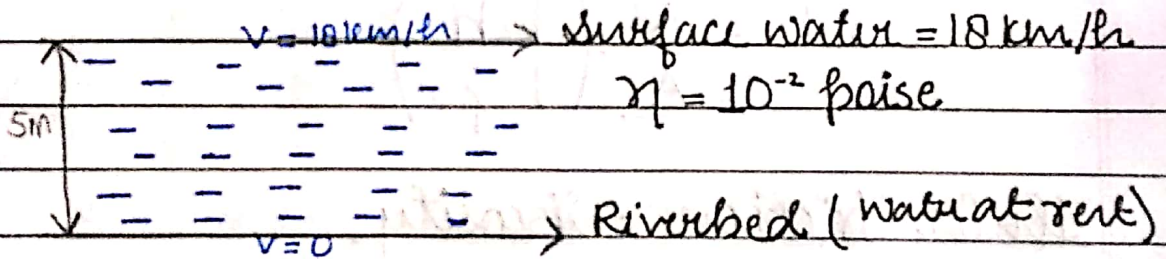 V = 18 km/h → Surface water = 18 km/h
η = 10⁻² poise
5m
Riverbed (water at rest)
V = 0